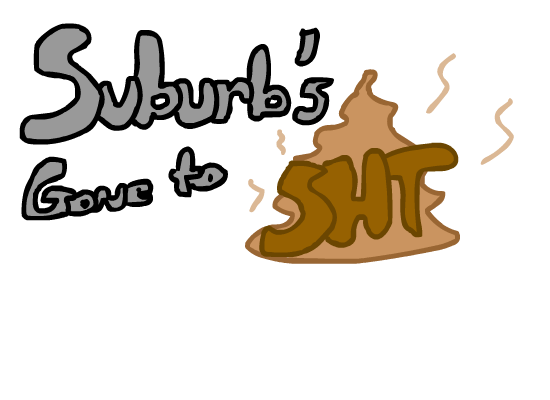 Suburb's
Gone to
SHT